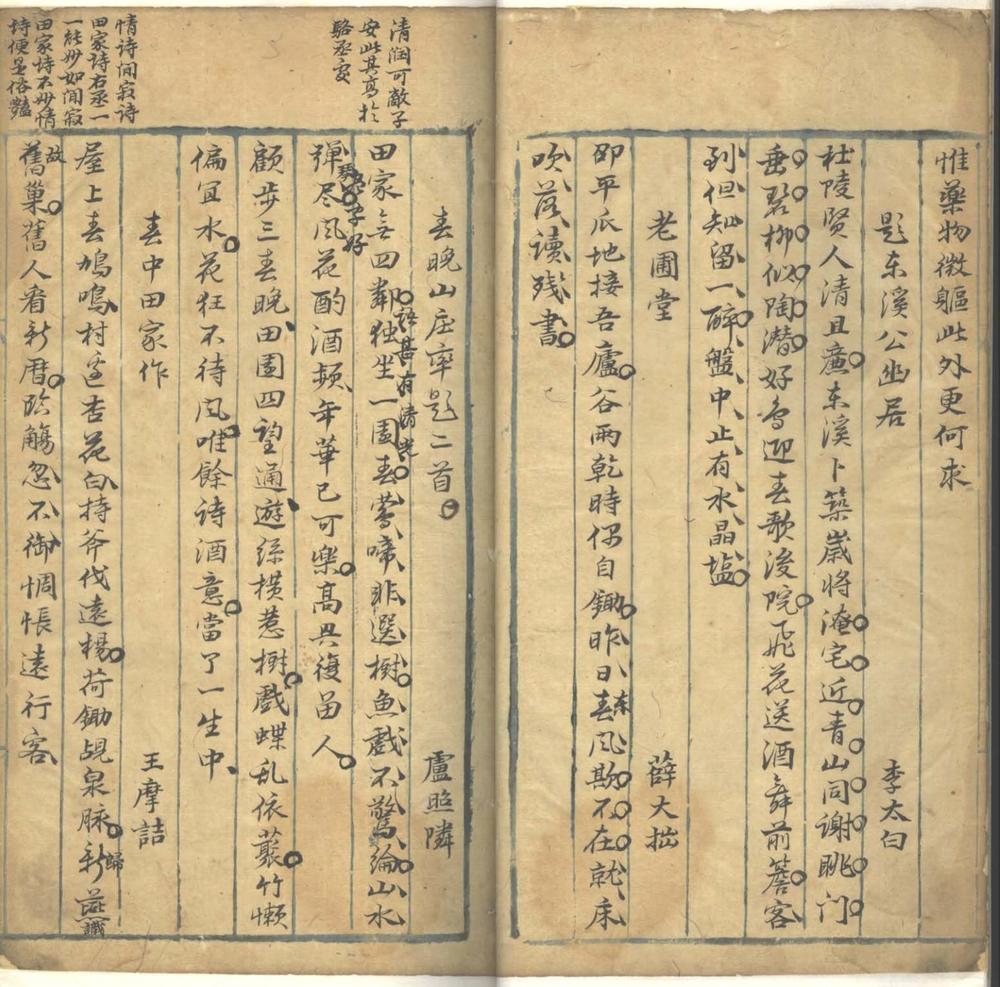 惟藥物微軀此外更何求
題东溪公幽居　李太白
杜陵賢人清且廉东溪卜築歲將淹宅近青山同谢眺门
垂碧柳似陶潜好鸟迎春歌後院飞花送酒舞前簷客
到但知留一醉盤中止有水晶塩
老圃堂　薛大拙
邵平瓜地接吾廬谷雨乾時偶自鋤昨日春风欺不在就床
东
吹落讀残書
清润可敵子
安此其高於
駱丞處
春晚山庄率题二首　盧照隣
田家无四鄰独坐一園春鶯啼非選樹魚戯不驚綸山水
語甚有清光
弹尽风花酌酒頻年華已可樂高興復留人
顧步三春晚田園四望通遊絲横惹樹戯蝶乱依藂竹懶
偏宜水花狂不待风唯餘诗酒意當了一生中
春中田家作　王摩詰
屋上春鳩鳴村邊杏花白持斧伐遠楊荷鋤覘泉脉新燕識
歸
舊巢舊人看新暦臨觴忽不御惆悵遠行客
故
情诗闺寂诗
田家诗右丞一
一能妙如闺寂
田家诗不妙情
诗便是俗豔